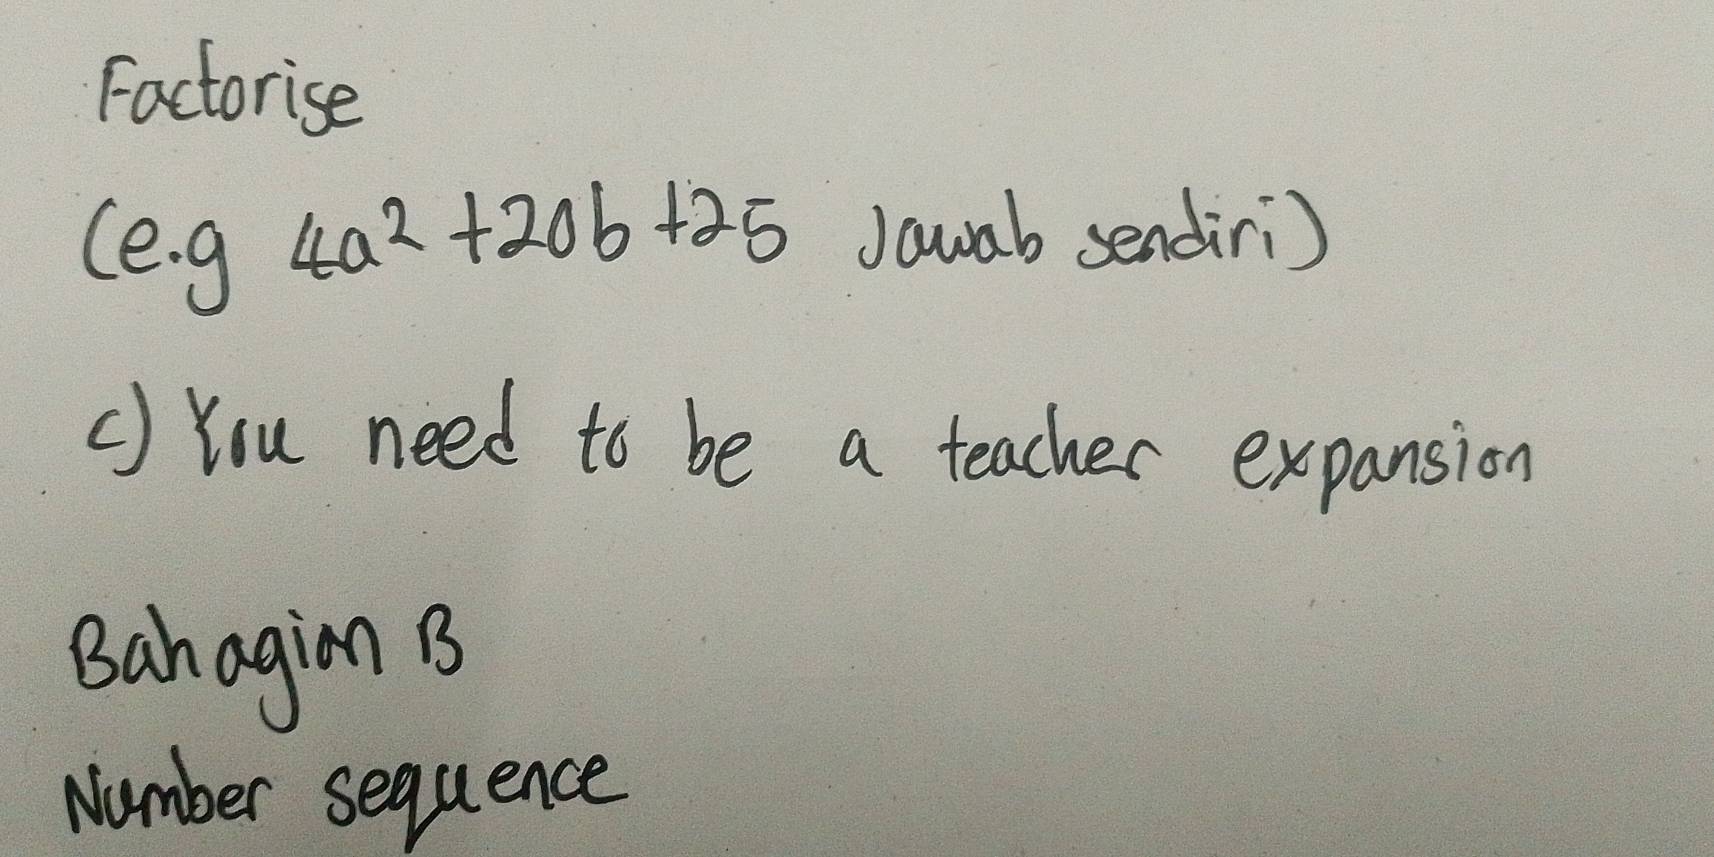 Factorise
(e.g 4a² +20b +25 Jawab sendiri)
c) You need to be a teacher expansion
Bahagian B
Number sequence